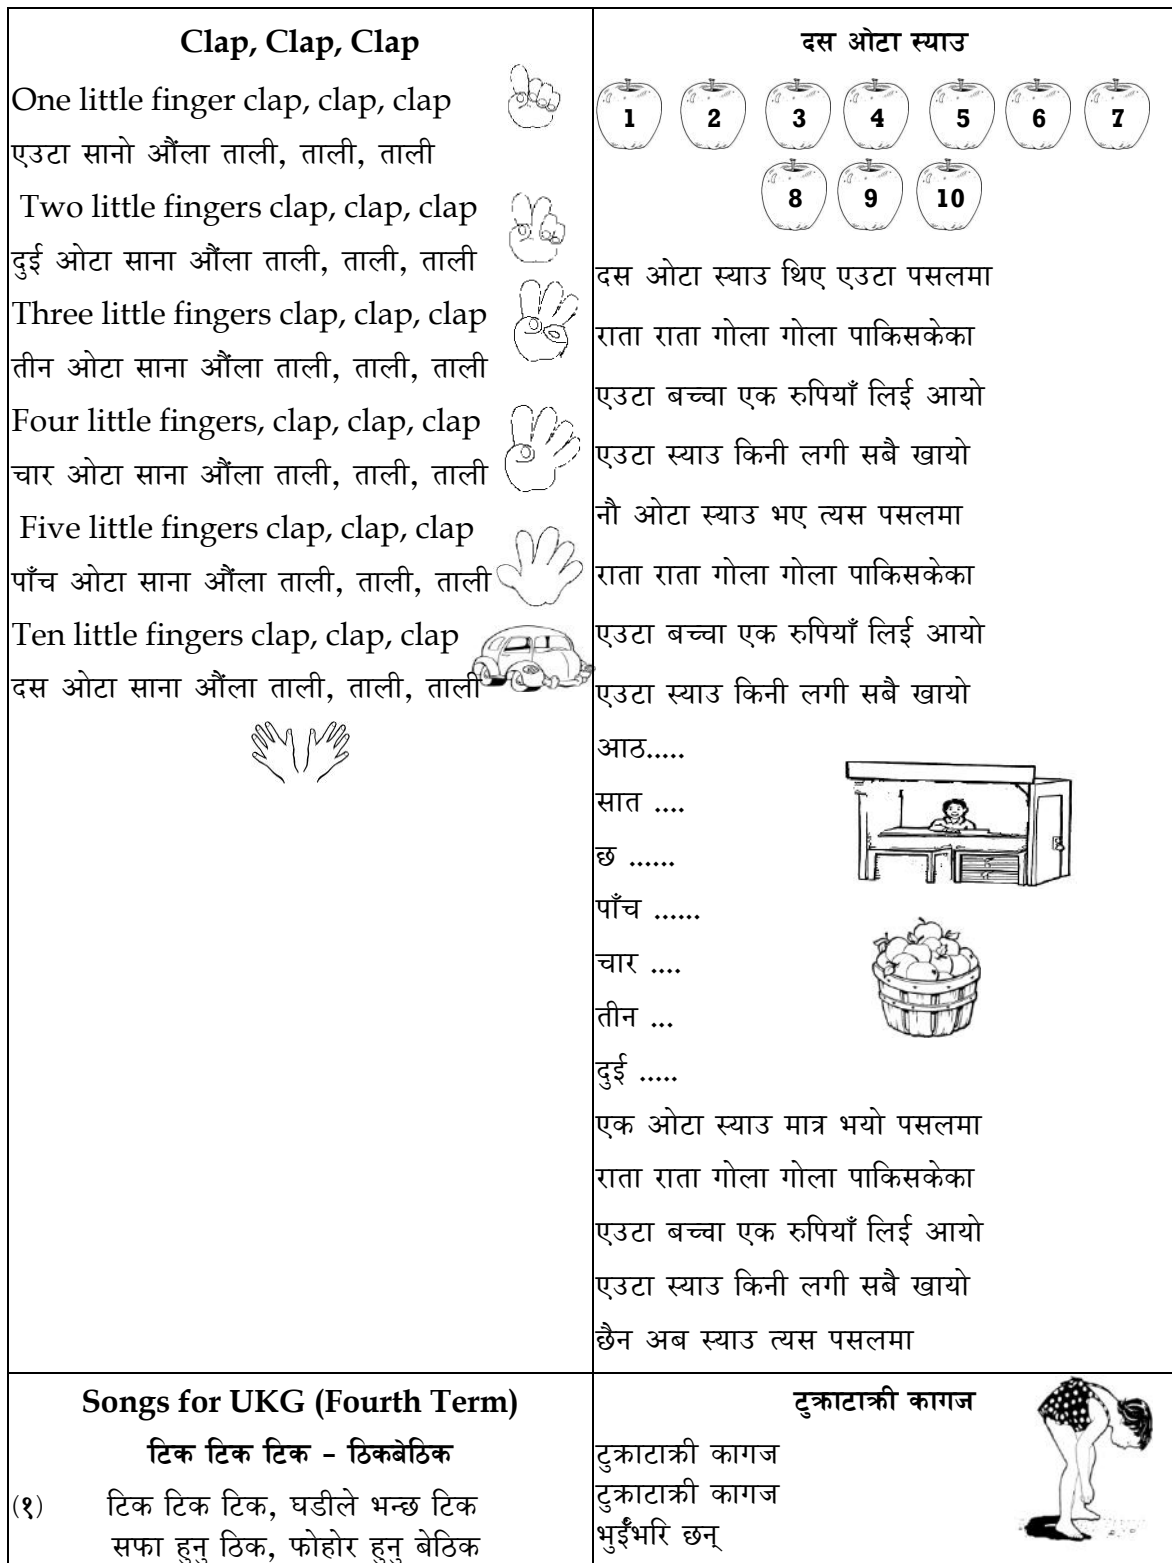 Clap, Clap, Clap
One little finger clap, clap, clap
एउटा सानो औंला ताली, ताली, ताली
Two little fingers clap, clap, clap
दुई ओटा साना औंला ताली, ताली, ताली
Three little fingers clap, clap, clap
तीन ओटा साना औंला ताली, ताली, ताली
Four little fingers, clap, clap, clap
चार ओटा साना औंला ताली, ताली, ताली
Five little fingers clap, clap, clap
पाँच ओटा साना औंला ताली, ताली, ताली
Ten little fingers clap, clap, clap
दस ओटा साना औंला ताली, ताली, ताली
दस ओटा स्याउ
1 2 3 4 5 6 7
8 9 10
दस ओटा स्याउ थिए एउटा पसलमा
राता राता गोला गोला पाकिसकेका
एउटा बच्चा एक रुपियाँ लिई आयो
एउटा स्याउ किनी लगी सबै खायो
नौ ओटा स्याउ भए त्यस पसलमा
राता राता गोला गोला पाकिसकेका
एउटा बच्चा एक रुपियाँ लिई आयो
एउटा स्याउ किनी लगी सबै खायो
आठ.....
सात ....
छ ......
पाँच ......
चार ....
तीन ...
दुई .....
एक ओटा स्याउ मात्र भयो पसलमा
राता राता गोला गोला पाकिसकेका
एउटा बच्चा एक रुपियाँ लिई आयो
एउटा स्याउ किनी लगी सबै खायो
छैन अब स्याउ त्यस पसलमा
Songs for UKG (Fourth Term)
टिक टिक टिक – ठिकबेठिक
(१) टिक टिक टिक, घडीले भन्छ टिक
सफा हुनु ठिक, फोहोर हुनु बेठिक
टुक्राटाक्री कागज
टुक्राटाक्री कागज
टुक्राटाक्री कागज
भुइँभरि छन्